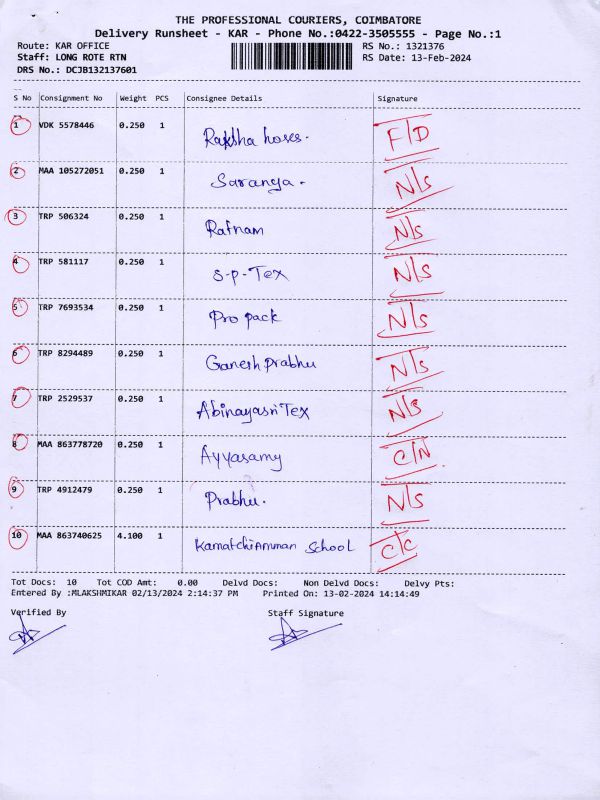 THE PROFESSIONAL COURIERS, COIMBATORE
Delivery Runsheet - KAR - Phone No.:0422-3505555 - Page No.:1
Route: KAR OFFICE RS No.: 1321376
Staff: LONG ROTE RTN RS Date: 13-Feb-2024
DRS No.: DCJB132137601
S No Consignment No Weight PCS Consignee Details Signature
1 VDK 5578446 0.250 1 Raksha hoses. F/D
2 MAA 105272051 0.250 1 Saranya. N/S
3 TRP 506324 0.250 1 Ratnam N/S
4 TRP 581117 0.250 1 S-P-Tex N/S
5 TRP 7693534 0.250 1 Pro pack N/S
6 TRP 8294489 0.250 1 Ganesh prabhu N/S
7 TRP 2529537 0.250 1 Abinayasri Tex N/S
8 MAA 863778720 0.250 1 Ayyasamy C/N
9 TRP 4912479 0.250 1 Prabhu. N/S
10 MAA 863740625 4.100 1 Kamatchiamman School C/C
Tot Docs: 10 Tot COD Amt: 0.00 Delvd Docs: Non Delvd Docs: Delvy Pts:
Entered By :MLAKSHMIKAR 02/13/2024 2:14:37 PM Printed On: 13-02-2024 14:14:49
Verified By Staff Signature